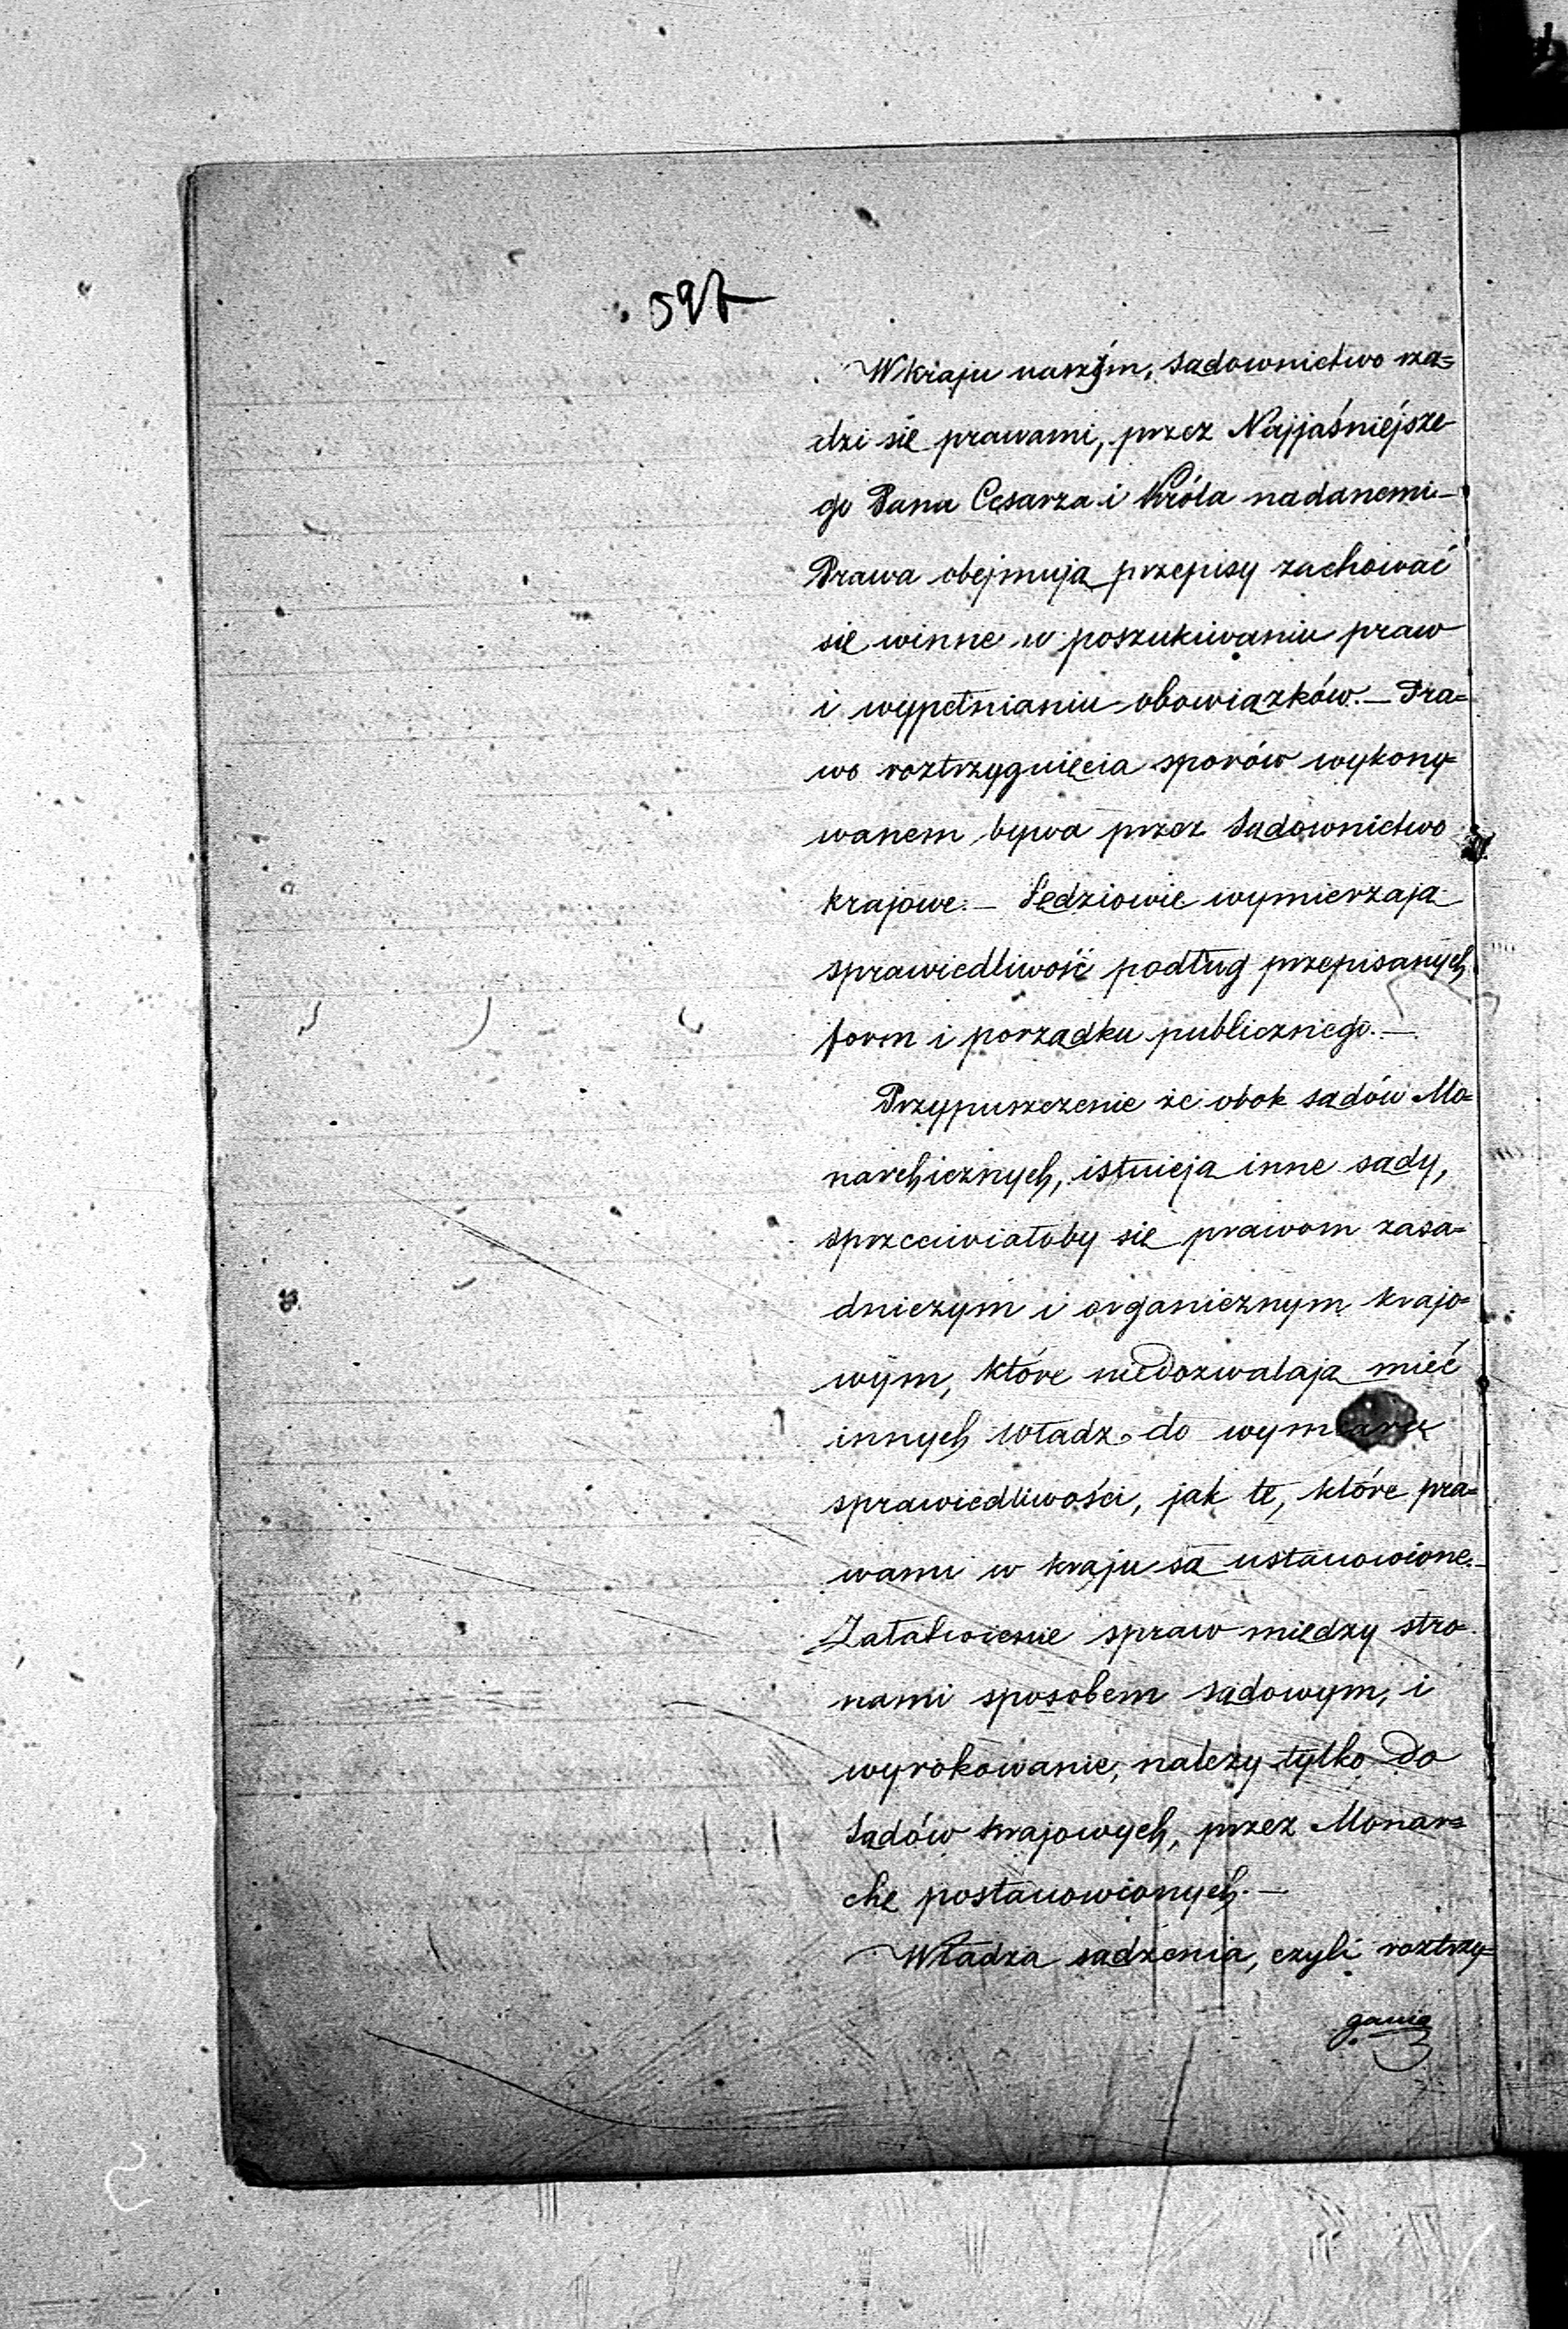 597
W kraju naszym, Sądownictwo rzą=
dzi się prawami, przez Najjaśniejsze
go Pana Cesarza i Króla nadanemi.—
Prawa obejmują przepisy zachować
się winne w poszukiwaniu praw
i wypełnianiu obowiązków.— Pra=
wo roztrzygnięcia sporów wykony=
wanem bywa przez Sądownictwo
krajowe.— Sędziowie wymierzają
sprawiedliwość podług przepisanych
form i porządku publicznego.—
Przypuszczenie że obok sądów Mo=
narchicznych, istnieją inne sądy,
sprzeciwiałoby się prawom zasa=
dniczym i organicznym krajo=
wym, które niedozwalają mieć
innych władz do wymiaru
sprawiedliwości, jak te, które pra=
wami w kraju są ustanowione.—
Załatwienie spraw między stro=
nami sposobem sądowym, i
wyrokowanie, należy tylko do
Sądów krajowych, przez Monar=
chę postanowionych.—
Władza sądzenia, czyli roztrzy=
gania